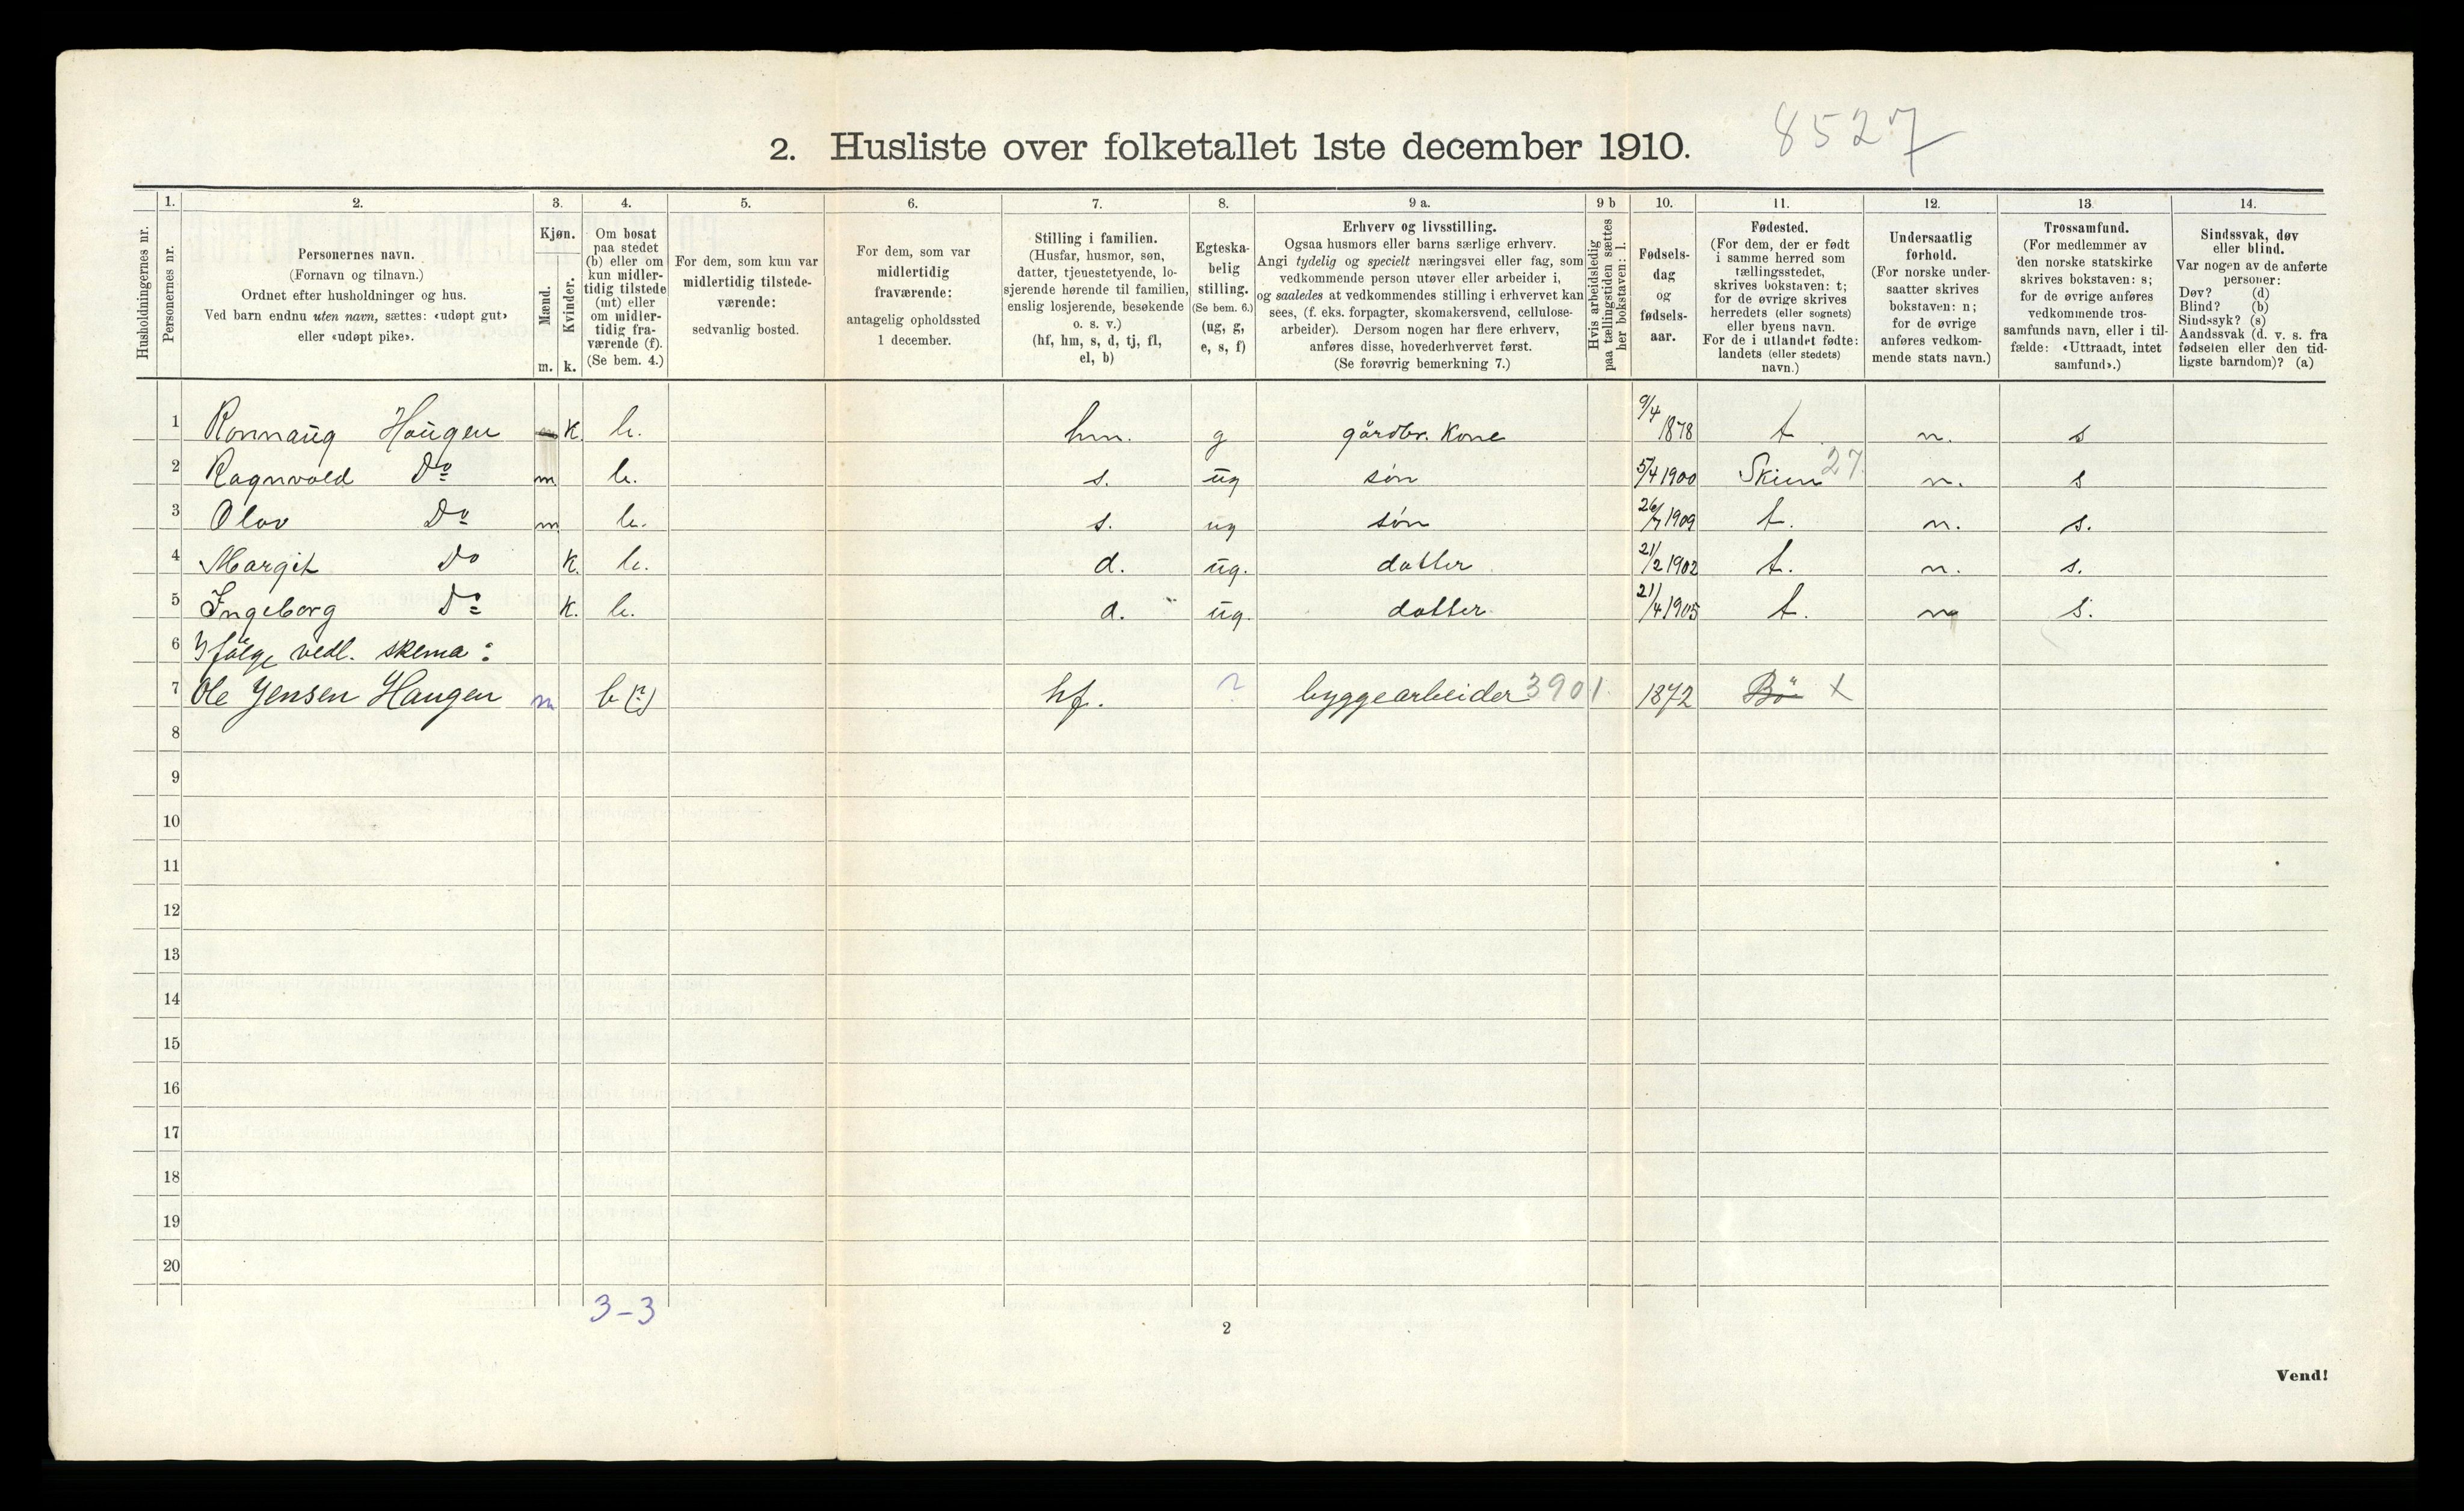 8527
2. Husliste over folketallet 1ste december 1910.
Husholdningernes nr.
1.
Personernes nr.
2.
Personernes navn.
(Fornavn og tilnavn.)
Ordnet efter husholdninger og hus.
Ved barn endnu uten navn, sættes: «udøpt gut»
eller «udøpt pike».
3.
Kjøn.
Mænd.
Kvinder.
m. k.
4.
Om bosat
paa stedet
(b) eller om
kun midler-
tidig tilstede
(mt) eller
om midler-
tidig fra-
værende (f).
(Se bem. 4.)
5.
For dem, som kun var
midlertidig tilstede-
værende:
sedvanlig bosted.
6.
For dem, som var
midlertidig
fraværende:
antagelig opholdssted
1 december.
7.
Stilling i familien.
(Husfar, husmor, søn,
datter, tjenestetyende, lo-
sjerende hørende til familien,
enslig losjerende, besøkende
o. s. v.)
(hf, hm, s, d, tj, fl,
el, b)
8.
Egteska-
belig
stilling.
(Se bem. 6.)
(ug, g,
e, s, f)
9 a.
Erhverv og livsstilling.
Ogsaa husmors eller barns særlige erhverv.
Angi tydelig og specielt næringsvei eller fag, som
vedkommende person utøver eller arbeider i,
og saaledes at vedkommendes stilling i erhvervet kan
sees, (f. eks. forpagter, skomakersvend, cellulose-
arbeider). Dersom nogen har flere erhverv,
anføres disse, hovederhvervet først.
(Se forøvrig bemerkning 7.)
9 b
Hvis arbeidsledig
paa tællingstiden sættes
her bokstaven: l.
10.
Fødsels-
dag
og
fødsels-
aar.
11.
Fødested.
(For dem, der er født
i samme herred som
tællingsstedet,
skrives bokstaven: t;
for de øvrige skrives
herredets (eller sognets)
eller byens navn.
For de i utlandet fødte:
landets (eller stedets)
navn.)
12.
Undersaatlig
forhold.
(For norske under-
saatter skrives
bokstaven: n;
for de øvrige
anføres vedkom-
mende stats navn.)
13
Trossamfund.
(For medlemmer av
den norske statskirke
skrives bokstaven: s;
for de øvrige anføres
vedkommende tros-
samfunds navn, eller i til-
fælde: «Uttraadt, intet
samfund».)
14.
Sindssvak, døv
eller blind.
Var nogen av de anførte
personer:
Døv? (d)
Blind? (b)
Sindssyk? (s)
Aandssvak (d. v. s. fra
fødselen eller den tid-
ligste barndom)? (a)
1 Ronnaug Haugen k. b. hm. g gårdbr. Kone 9/4 1878 t n. s
2 Ragnvald Do m b. s. ug søn 5/4 1900 Skien 27. n. s
3 Olav Do m b. s. ug søn 26/7 1909 t. n. s.
4 Margit Do k. b. d. ug. datter 21/2 1902 t. n. s.
5 Ingeborg Do k. b. d. ug. datter 21/4 1905 t. n s.
6 Ifølge vedl. skema:
7 Ole Jensen Haugen m b (?) hf. ? byggearbeider 3901. 1872 Bö t
8
9
10
11
12
13
14
15
16
17
18
19
20
3-3
2
Vend!